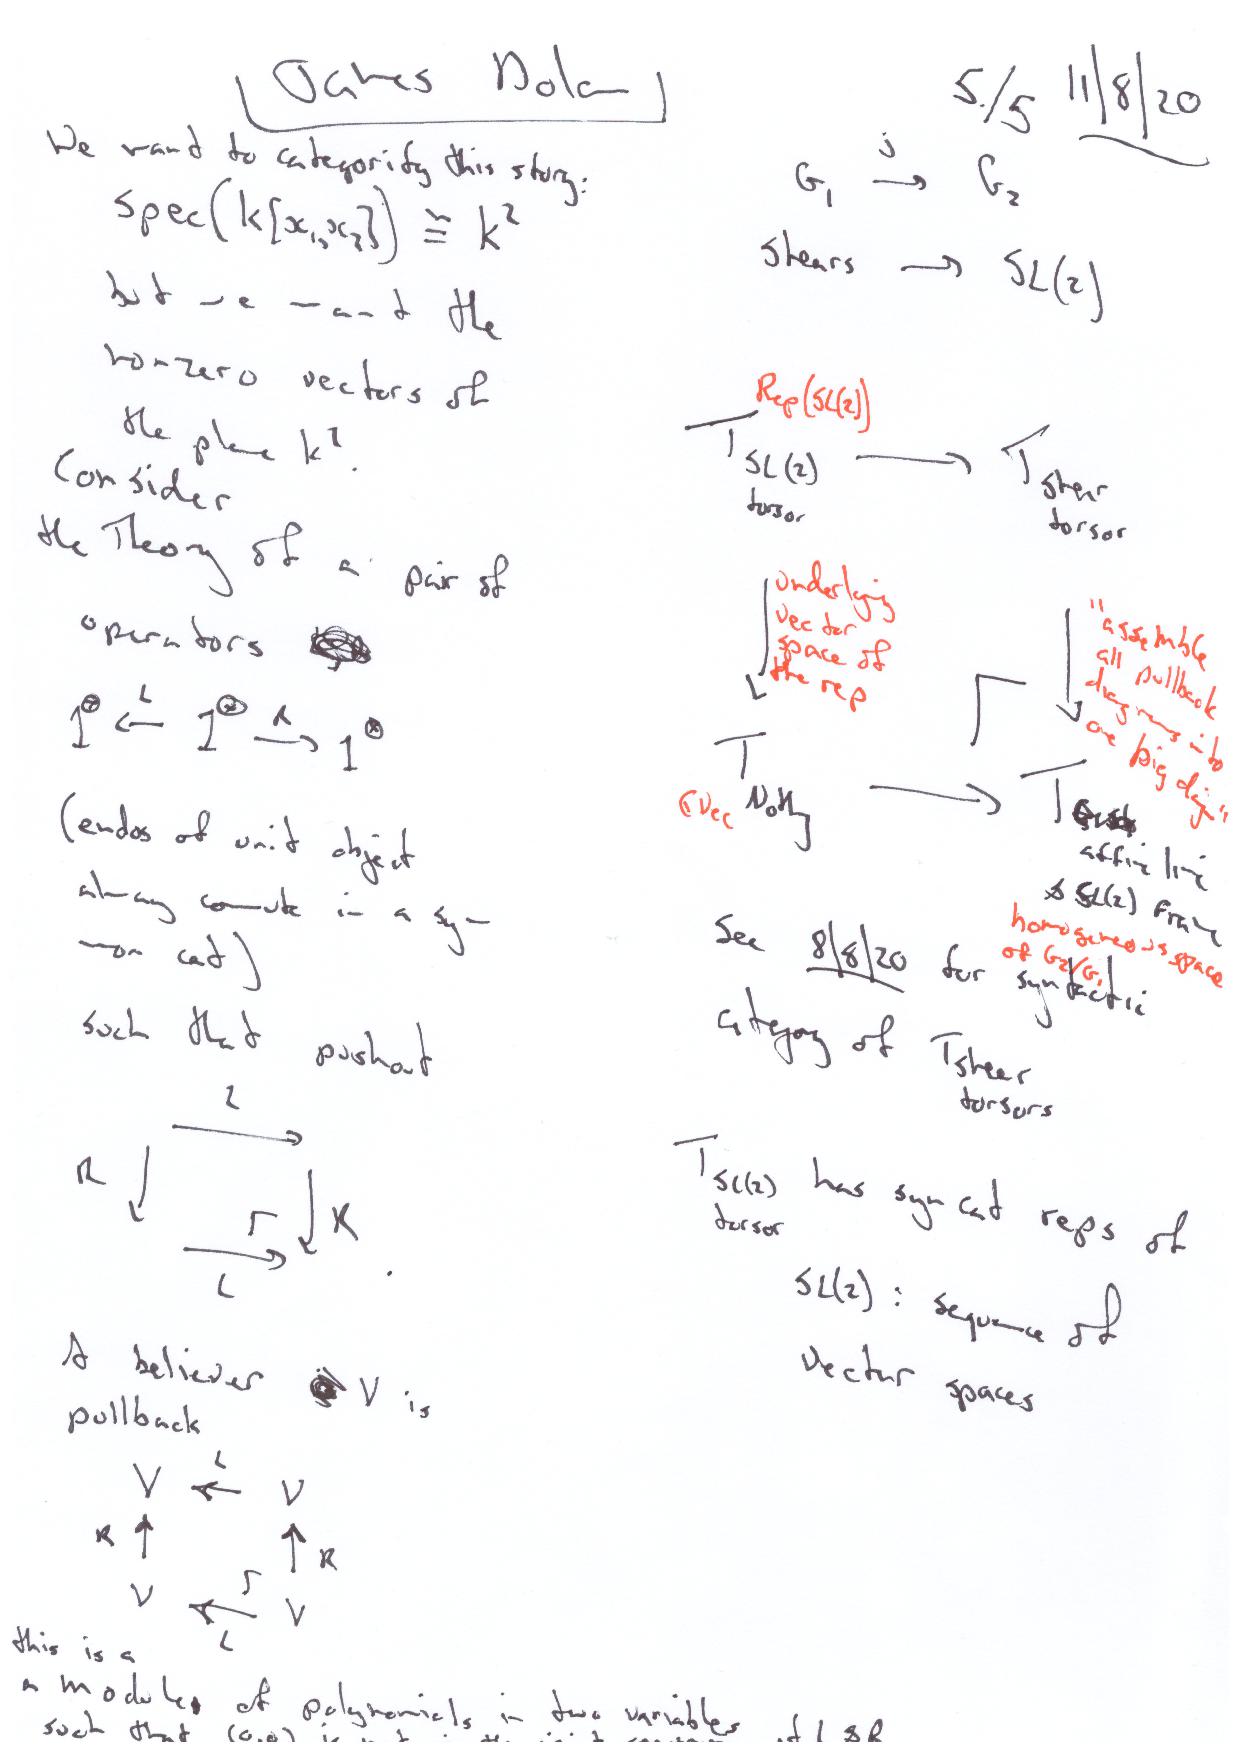 James Dolan
5./5 11/8/20
We want to categorify this story:
spec(k[x₁,x₂]) ≅ k²
but we want the
nonzero vectors of
the plane k².
Consider
the Theory of a pair of
operators
1^⊗ ←L 1^⊗ R→ 1^⊗
(endos of unit object
always commute in a sym
mon cat)
such that pushout
L
R
R
L
A believer V is
pullback
V ←L V
R ↑ ↑ R
V ← V
L
this is a
a module of polynomials in two variables
such that (0,0) is not in the joint spectrum of L & R
G₁ →j G₂
shears → SL(2)
Rep(SL(2))
T SL(2) torsor → T shear torsor
underlying
vector
space of
the rep
"assemble
all pullback
diagrams into
one big diag"
Vec
T Nothing → T
affine line
& SL(2) frame
homogeneous space
of G₂/G₁
See 8/8/20 for syntactic
category of T shear
torsors
T SL(2) torsor has syn cat reps of
SL(2) : sequence of
vector spaces